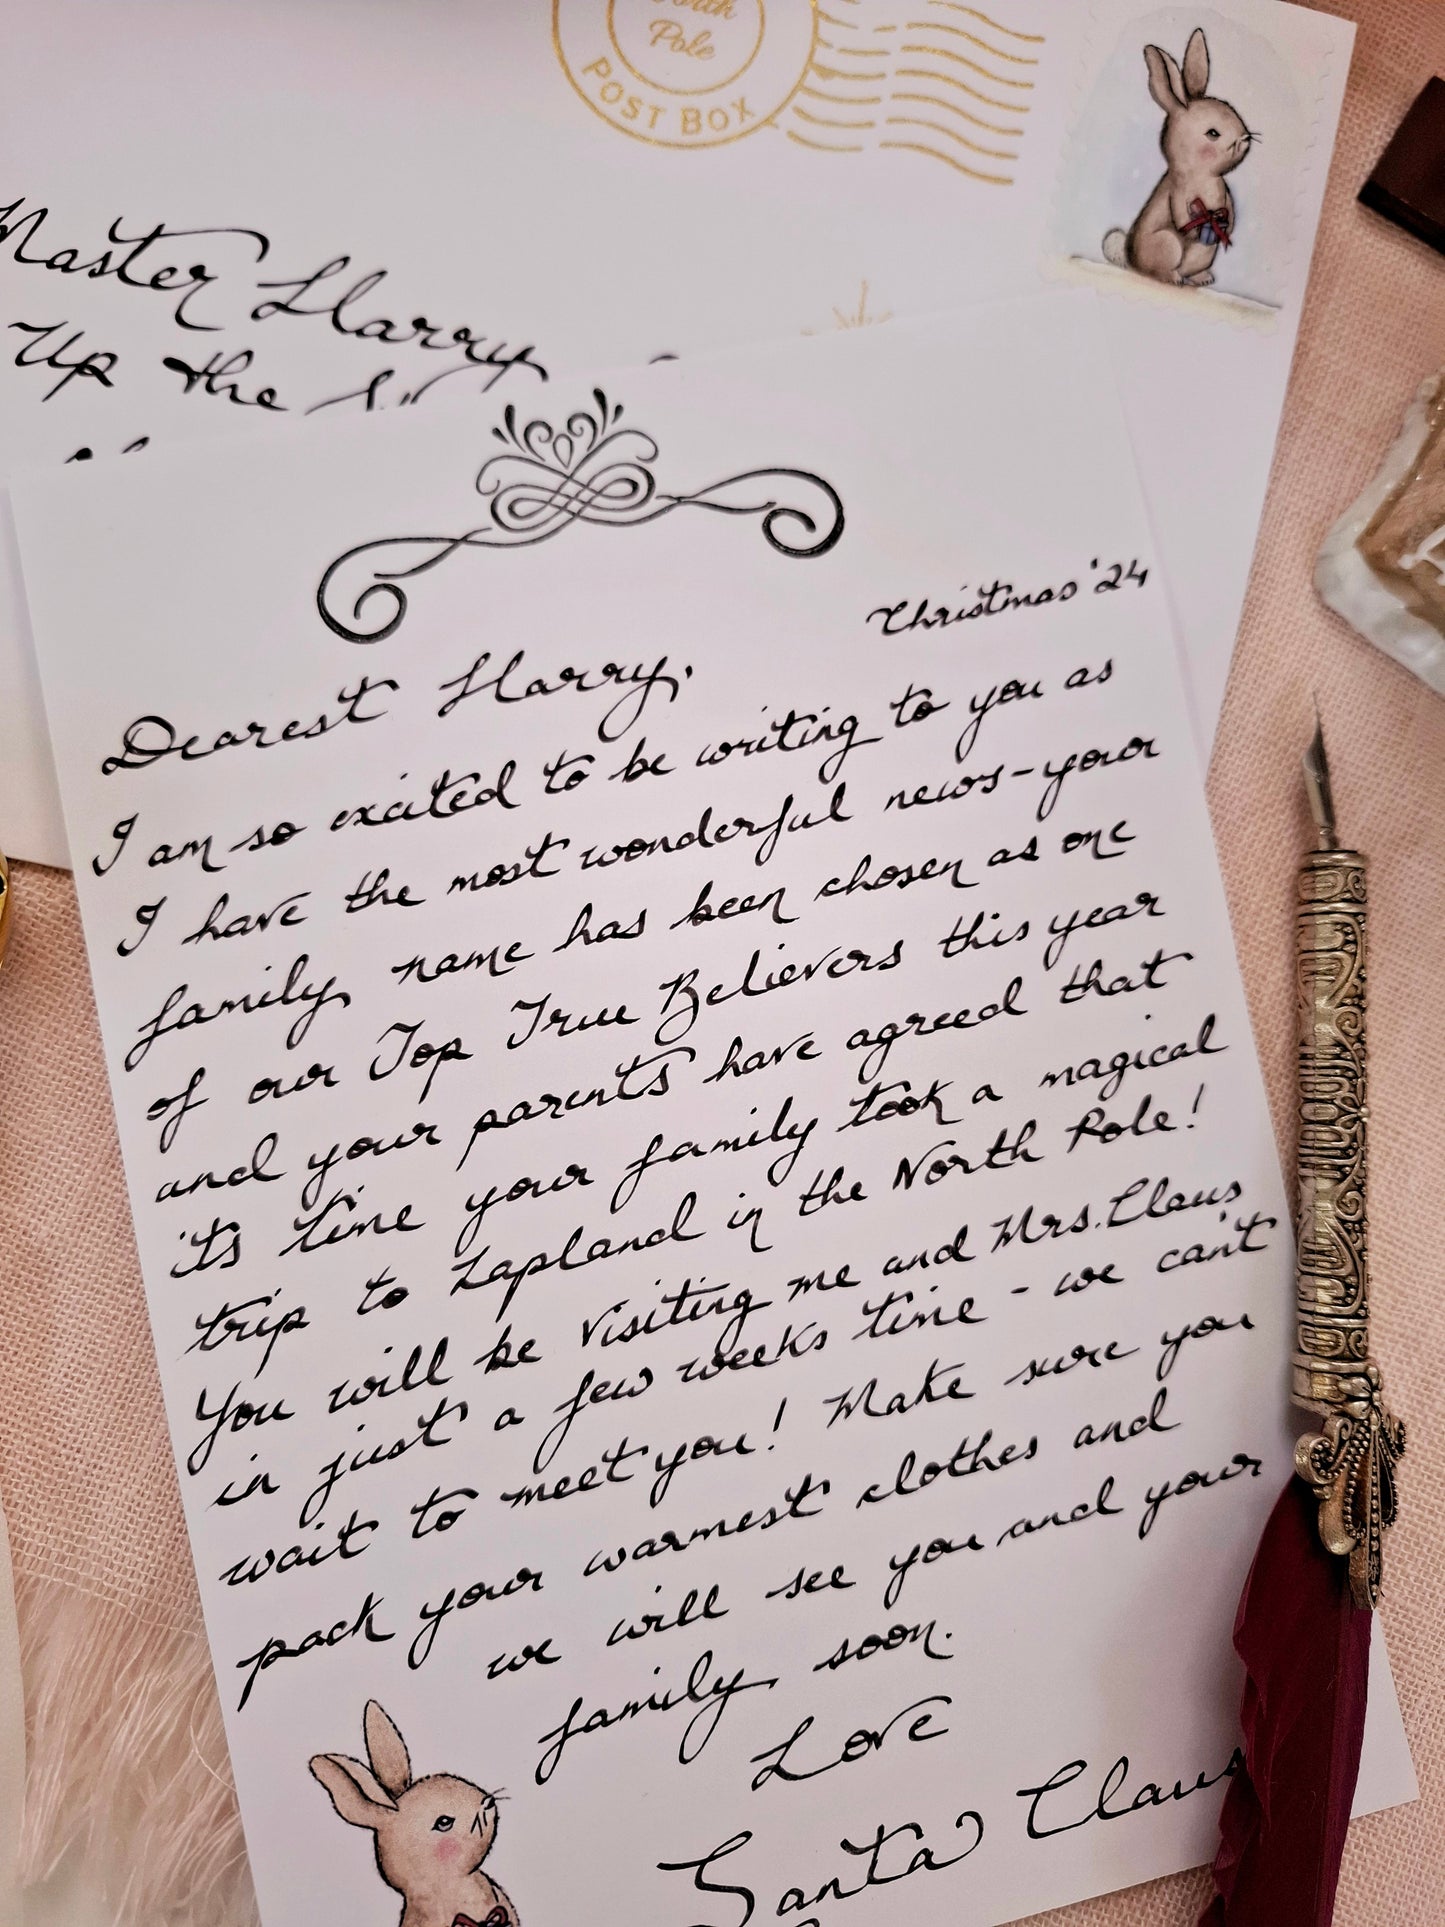 North
Pole
POST BOX
Master Harry
Up the
Christmas '24
Dearest Harry,
I am so excited to be writing to you as
I have the most wonderful news - your
family name has been chosen as one
of our Top True Believers this year
and your parents have agreed that
its time your family took a magical
trip to Lapland in the North Pole!
You will be visiting me and Mrs. Claus
in just a few weeks time - we can't
wait to meet you! Make sure you
pack your warmest clothes and
we will see you and your
family soon.
Love
Santa Claus